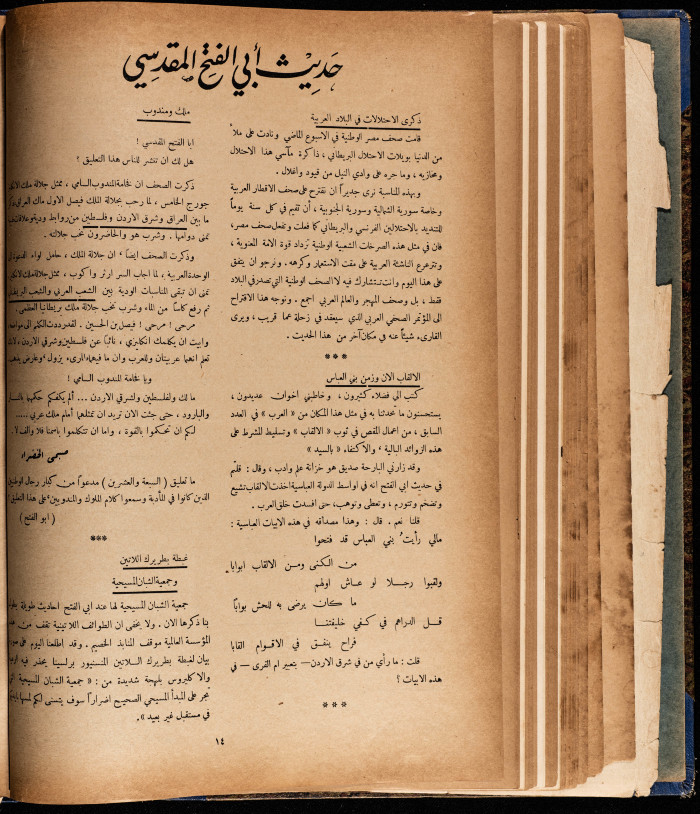 حديث أبي الفتح المقدسي
ذكرى الاحتلالات في البلاد العربية
قامت صحف مصر الوطنية في الاسبوع الماضي ونادت على ملأ
من الدنيا بويلات الاحتلال البريطاني، ذاكرة مآسي هذا الاحتلال
ومخازيه، وما جره على وادي النيل من قيود واغلال.
وبهذه المناسبة نرى جديراً ان نقترح على صحف الاقطار العربية
وخاصة سورية الشمالية وسورية الجنوبية، أن تقيم في كل سنة يوماً
للتنديد بالاحتلالين الفرنسي والبريطاني كما فعلت وتفعل صحف مصر،
فان في مثل هذه الصرخات الشعبية الوطنية تزداد قوة الامة المعنوية،
وتترعرع الناشئة العربية على مقت الاستعمار وكرهه. ونرجو ان يتفق
على هذا اليوم وانت تشارك فيه لا الصحف الوطنية التي تصدر في البلاد
فقط، بل وصحف المهجر والعالم العربي اجمع. ونوجه هذا الاقتراح
الى المؤتمر الصحفي العربي الذي سيعقد في زحلة عما قريب، ويرى
القارىء شيئاً عنه في مكان آخر من هذا الحديث.
***
الالقاب الان وزمن بني العباس
كتب الي فضلاء كثيرون، وخاطبني اخوان عديدون،
يستحسنون ما تحدثنا به في مثل هذا المكان من « العرب » في العدد
السابق، من اعمال المقص في ثوب « الالقاب » وتسليط المشرط على
هذه الزوائد البالية، والاكتفاء « بالسيد »
وقد زارني البارحة صديق هو خزانة علم وادب، وقال: قلتم
في حديث ابي الفتح انه في اواسط الدولة العباسية اخذت الالقاب تشيع
وتضخم وتتورم، وتعطى وتوهب، حتى افسدت خلق العرب.
قلنا نعم. قال: وهذا مصداقه في هذه الابيات العباسية:
مالي رأيتُ بني العباس قد فتحوا
من الكنى ومن الالقاب ابوابا
ولقبوا رجلا لو عاش اولهم
ما كان يرضى به للحش بوابا
قل الدراهم في كفي خليفتنا
فراح ينفق في الاقوام القابا
قلت: ما رأي من في شرق الاردن— بتعبير ام القرى — في
هذه الابيات؟
***
ملك ومندوب
ابا الفتح المقدسي!
هل لك ان تنشر للناس هذا التعليق؟
ذكرت الصحف ان فخامة المندوب السامي، ممثل جلالة ملك
جورج الخامس، لما رحب بجلالة الملك فيصل الاول ملك العراق
ما بين العراق وشرق الاردن وفلسطين من روابط ودية
تمنى دوامها. وشرب هو والحاضرون نخب جلالته.
وذكرت الصحف ايضاً ان جلالة الملك، حامل لواء
الوحدة العربية، لما اجاب السر ارثر واكوب، ممثل جلالة ملك
تمنى ان تبقى المناسبات الودية بين الشعب العربي والشعب
ثم رفع كاساً من الماء وشرب نخب جلالة ملك بريطانيا العظمى.
مرحى! مرحى! فيصل بن الحسين. لقد رددت الكلام الى
وابيت ان يكلمك انكليزي، نائباً عن فلسطين وشرقي الاردن،
تعلم انهما عربيتان وللعرب وان ما فيهما المرىء يزول
ويا فخامة المندوب السامي!
ما لك ولفلسطين ولشرقي الاردن ... ألم يكفكم حكمها
والبارود، حتى جئت الان تريد ان تمثلهما أمام ملك عربي .....
لكم ان تحكموا بالقوة، واما ان تتكلموا باسمنا فلا
صبحي الخضراء
ما تعليق ( السبعة والعشرين ) مدعواً من كبار رجال
الذين كانوا في المأدبة وسمعوا كلام الملوك والمندوبين على هذا التعليق
( ابو الفتح )
***
غبطة بطريرك اللاتين
وجمعية الشبان المسيحية
جمعية الشبان المسيحية لها عند ابي الفتح احاديث طويلة
بنا ذكرها الان. ولا يخفى ان الطوائف اللاتينية تقف من
المؤسسة العالمية موقف المنابذ الخصيم. وقد اطلعنا اليوم على
بيان لغبطة بطريرك اللاتين المنسنيور برلسينا يحذر فيه
والاكليروس بلهجة شديدة من: « جمعية الشبان المسيحية
تجر على المبدأ المسيحي الصحيح اضراراً سوف يتسنى لكم
في مستقبل غير بعيد ».
١٤